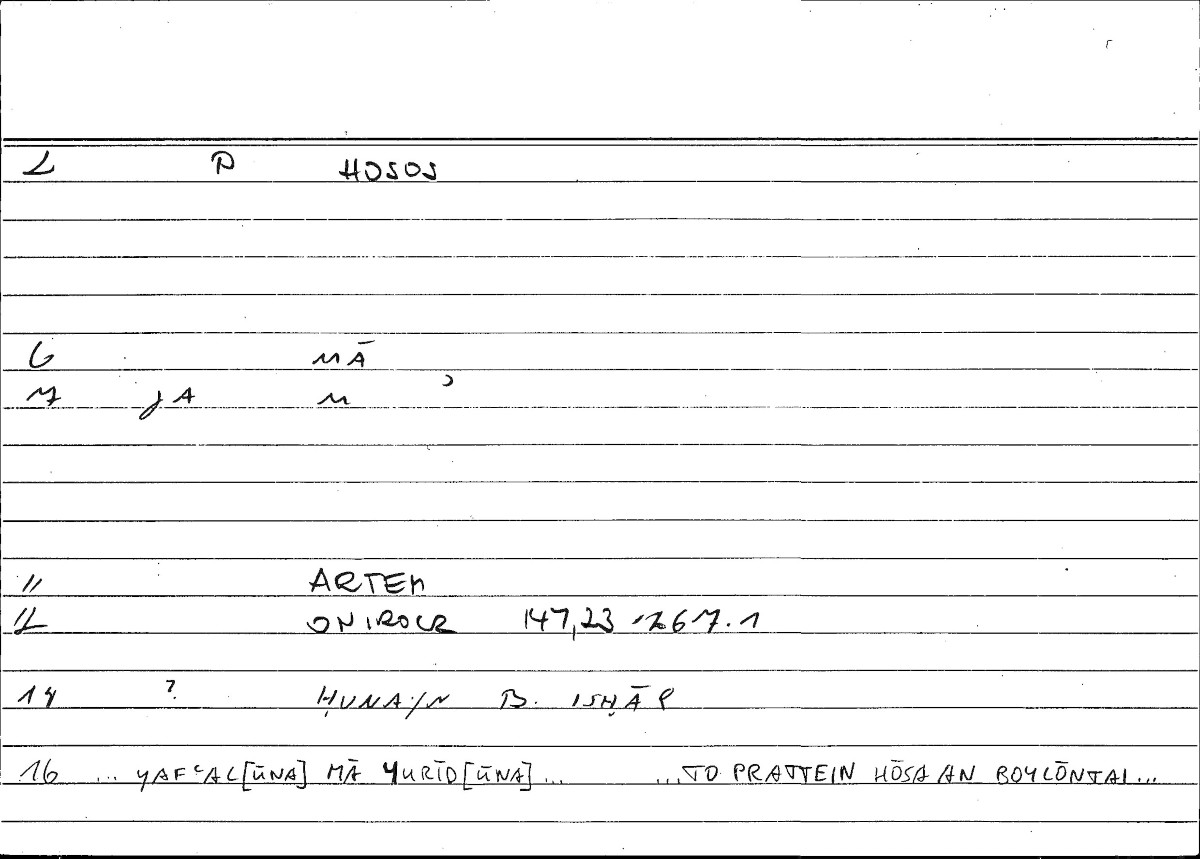 2 P HOSOS
6 MĀ
7 JA M
11 ARTEM
12 ONIROCR 147,23 - 267.1
14 ? ḤUNAIN B. ISḤĀQ
16 ... YAFʿAL[ŪNA] MĀ YURĪD[ŪNA] ... ...TO PRATTEIN HŌSA AN BOYLŌNTAI...